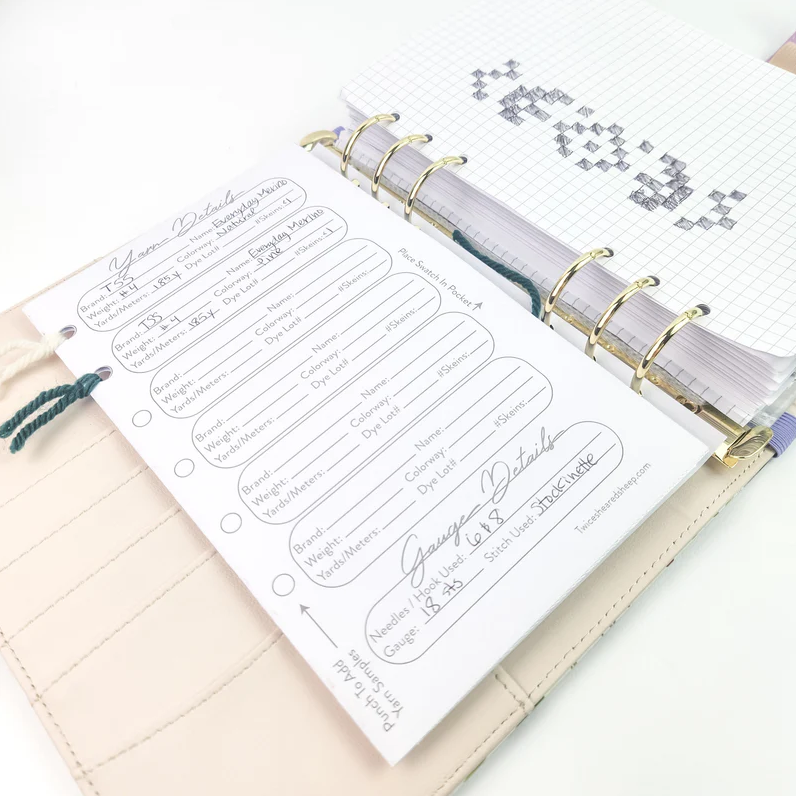 Yarn Details
Brand: TSS Name: Everyday Merino
Weight: #4 Colorway: Natural
Yards/Meters: 185y Dye Lot# #Skeins: <1
Brand: TSS Name: Everyday Merino
Weight: #4 Colorway: Pine
Yards/Meters: 185y Dye Lot# #Skeins: <1
Brand: Name:
Weight: Colorway:
Yards/Meters: Dye Lot# #Skeins:
Brand: Name:
Weight: Colorway:
Yards/Meters: Dye Lot# #Skeins:
Brand: Name:
Weight: Colorway:
Yards/Meters: Dye Lot# #Skeins:
Brand: Name:
Weight: Colorway:
Yards/Meters: Dye Lot# #Skeins:
Place Swatch In Pocket
Gauge Details
Needles / Hook Used: 6 & 8 Stitch Used: Stockinette
Gauge: 18 sts
Twiceshearedsheep.com
Punch To Add
Yarn Samples